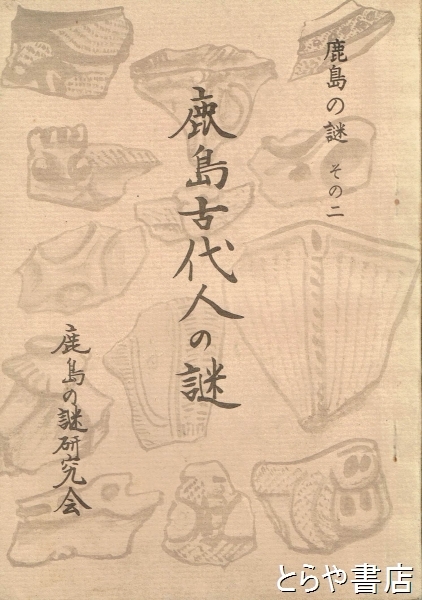 鹿島の謎 その二
鹿島古代人の謎
鹿島の謎研究会
とらや書店